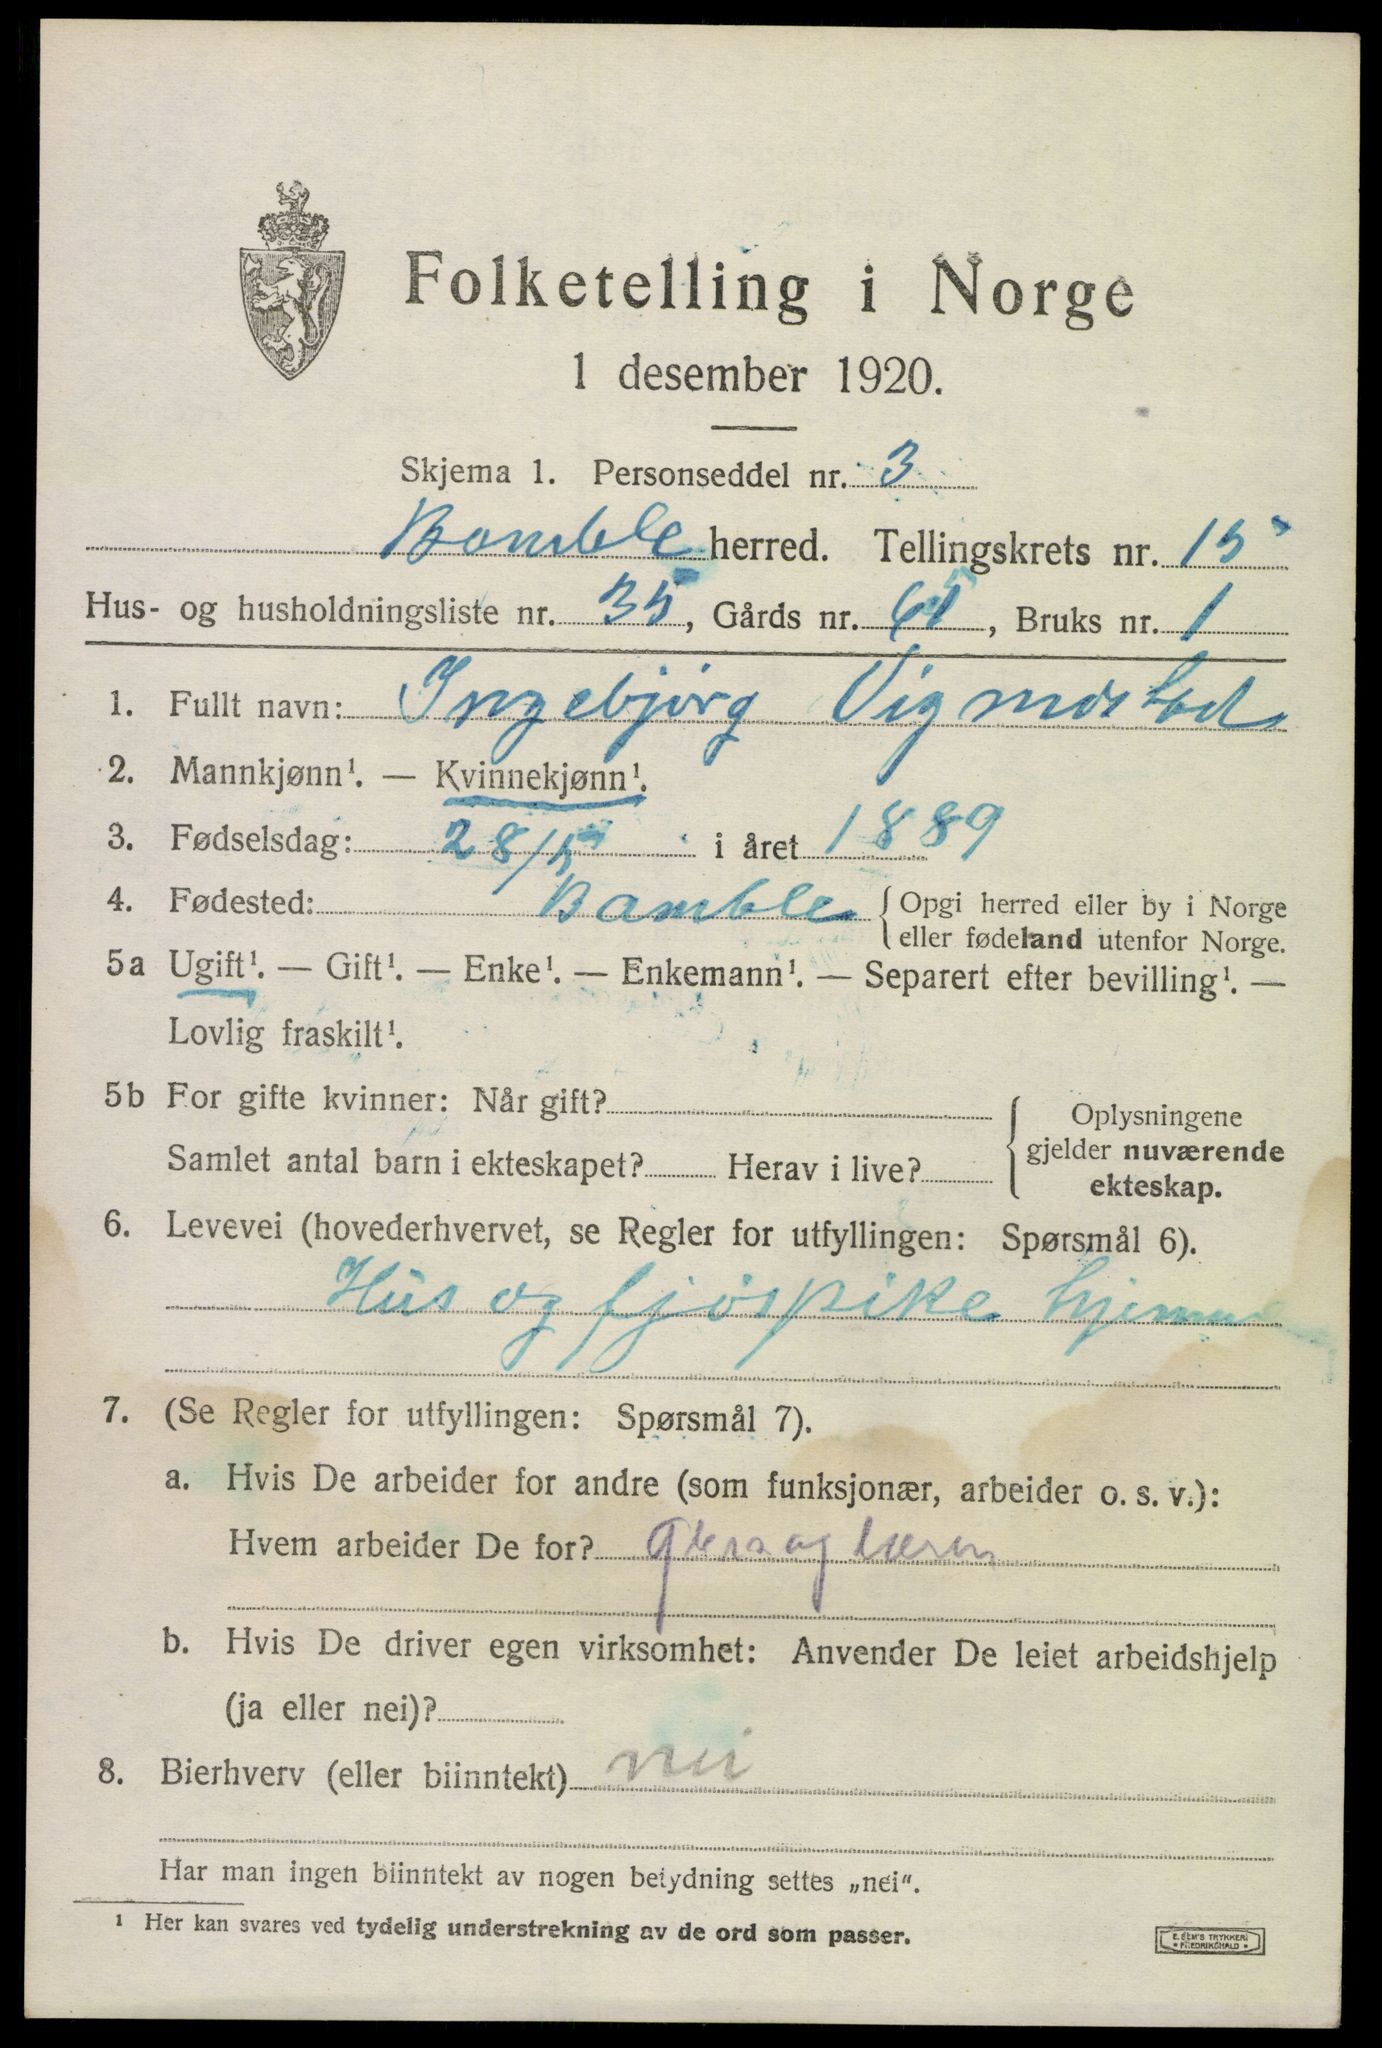 Folketelling i Norge
1 desember 1920.
Skjema 1. Personseddel nr. 3
Bamble herred. Tellingskrets nr. 15
Hus- og husholdningsliste nr. 35, Gårds nr. 61, Bruks nr. 1
1. Fullt navn: Ingebjørg Vigmostad
2. Mannkjønn¹. — Kvinnekjønn¹.
3. Fødselsdag: 28/5 i året 1889
4. Fødested: Bamble { Opgi herred eller by i Norge
eller fødeland utenfor Norge.
5a Ugift¹. — Gift¹. — Enke¹. — Enkemann¹. — Separert efter bevilling¹. —
Lovlig fraskilt¹.
5b For gifte kvinner: Når gift? Oplysningene
Samlet antal barn i ekteskapet? Herav i live? gjelder nuværende
ekteskap.
6. Levevei (hovederhvervet, se Regler for utfyllingen: Spørsmål 6).
Hus og fjøspike hjemme
7. (Se Regler for utfyllingen: Spørsmål 7).
a. Hvis De arbeider for andre (som funksjonær, arbeider o. s. v.):
Hvem arbeider De for?
b. Hvis De driver egen virksomhet: Anvender De leiet arbeidshjelp
(ja eller nei)?
8. Bierhverv (eller biinntekt) nei
Har man ingen biinntekt av nogen betydning settes „nei".
¹ Her kan svares ved tydelig understrekning av de ord som passer.
E. SEM'S TRYKKERI
FREDRIKSHALD